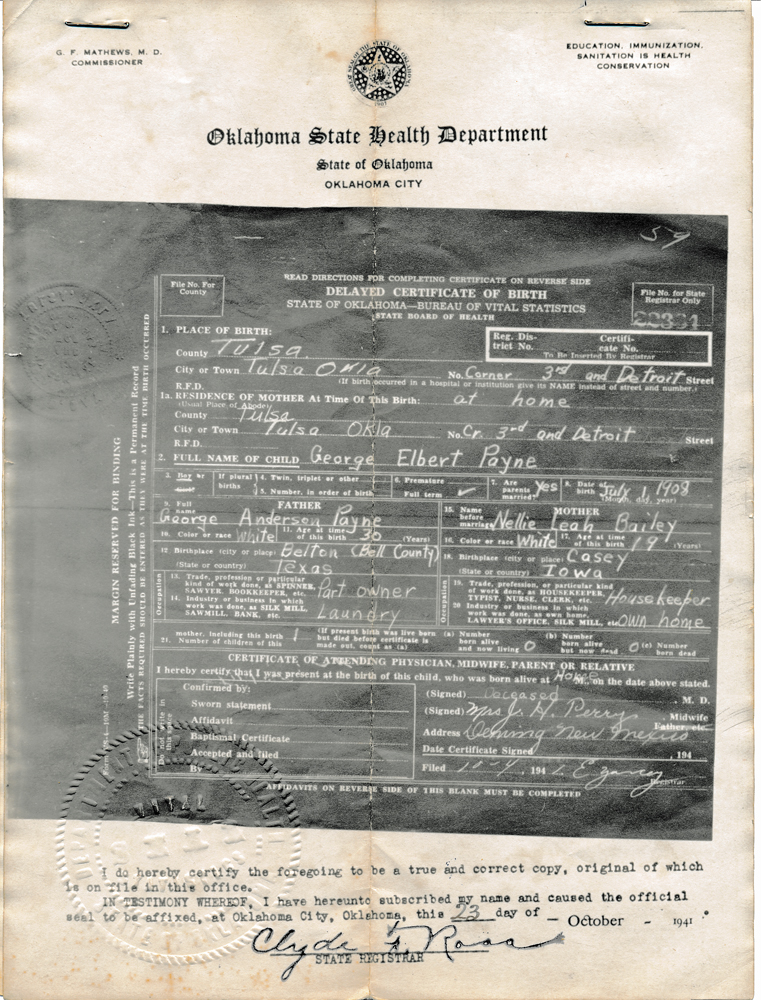 G. F. MATHEWS, M. D.
COMMISSIONER
EDUCATION, IMMUNIZATION,
SANITATION IS HEALTH
CONSERVATION
Oklahoma State Health Department
State of Oklahoma
OKLAHOMA CITY
59
READ DIRECTIONS FOR COMPLETING CERTIFICATE ON REVERSE SIDE
File No. For
County
DELAYED CERTIFICATE OF BIRTH
STATE OF OKLAHOMA—BUREAU OF VITAL STATISTICS
STATE BOARD OF HEALTH
File No. for State
Registrar Only
22331
1. PLACE OF BIRTH:
Reg. Dis-
trict No.
Certifi-
cate No.
To Be Inserted By Registrar
County Tulsa
City or Town Tulsa Okla No. Corner 3rd and Detroit Street
R.F.D. (If birth occurred in a hospital or institution give its NAME instead of street and number.)
1a. RESIDENCE OF MOTHER At Time Of This Birth: at home
(Usual Place of Abode)
County Tulsa
City or Town Tulsa Okla No. Cr. 3-rd and Detroit Street
R.F.D.
2. FULL NAME OF CHILD George Elbert Payne
3. Boy or
If plural births
4. Twin, triplet or other
5. Number, in order of birth
6. Premature
Full term ✓
7. Are parents married? Yes
8. Date of birth July 1, 1908
(Month, day, year)
FATHER
9. Full name George Anderson Payne
10. Color or race White 11. Age at time of this birth 30 (Years)
12 Birthplace (city or place) Belton (Bell County)
(State or country) Texas
Occupation
13. Trade, profession or particular kind of work done, as SPINNER, SAWYER, BOOKKEEPER, etc. Part owner
14. Industry or business in which work was done, as SILK MILL, SAWMILL, BANK, etc. Laundry
MOTHER
15. Name before marriage Nellie Leah Bailey
16. Color or race White 17. Age at time of this birth 19 (Years)
18. Birthplace (city or place) Casey
(State or country) Iowa
Occupation
19. Trade, profession, or particular kind of work done, as HOUSEKEEPER, TYPIST, NURSE, CLERK, etc. Housekeeper
20 Industry or business in which work was done, as own home, LAWYER'S OFFICE, SILK MILL, etc. Own home
21. Number of children of this mother, including this birth 1
(If present birth was live born but died before certificate is made out, count as (a)
(a) Number born alive and now living 0
(b) Number born alive but now dead 0
(c) Number born dead
CERTIFICATE OF ATTENDING PHYSICIAN, MIDWIFE, PARENT OR RELATIVE
I hereby certify that I was present at the birth of this child, who was born alive at M., on the date above stated.
Confirmed by:
Sworn statement
Affidavit
Baptismal Certificate
Accepted and filed
By
Do not write in this space
(Signed) Deceased M. D.
(Signed) Mrs J. H. Perry Midwife
Father, etc.
Address Deming New Mexico
Date Certificate Signed , 194
Filed 10-9, 1941. Registrar
AFFIDAVITS ON REVERSE SIDE OF THIS BLANK MUST BE COMPLETED
MARGIN RESERVED FOR BINDING
Write Plainly with Unfading Black Ink—This is a Permanent Record
THE FACTS REQUIRED SHOULD BE ENTERED AS THEY WERE AT THE TIME BIRTH OCCURRED
I do hereby certify the foregoing to be a true and correct copy, original of which
is on file in this office.
IN TESTIMONY WHEREOF, I have hereunto subscribed my name and caused the official
seal to be affixed, at Oklahoma City, Oklahoma, this 23 day of — October - 1941
Clyde F. Ross
STATE REGISTRAR